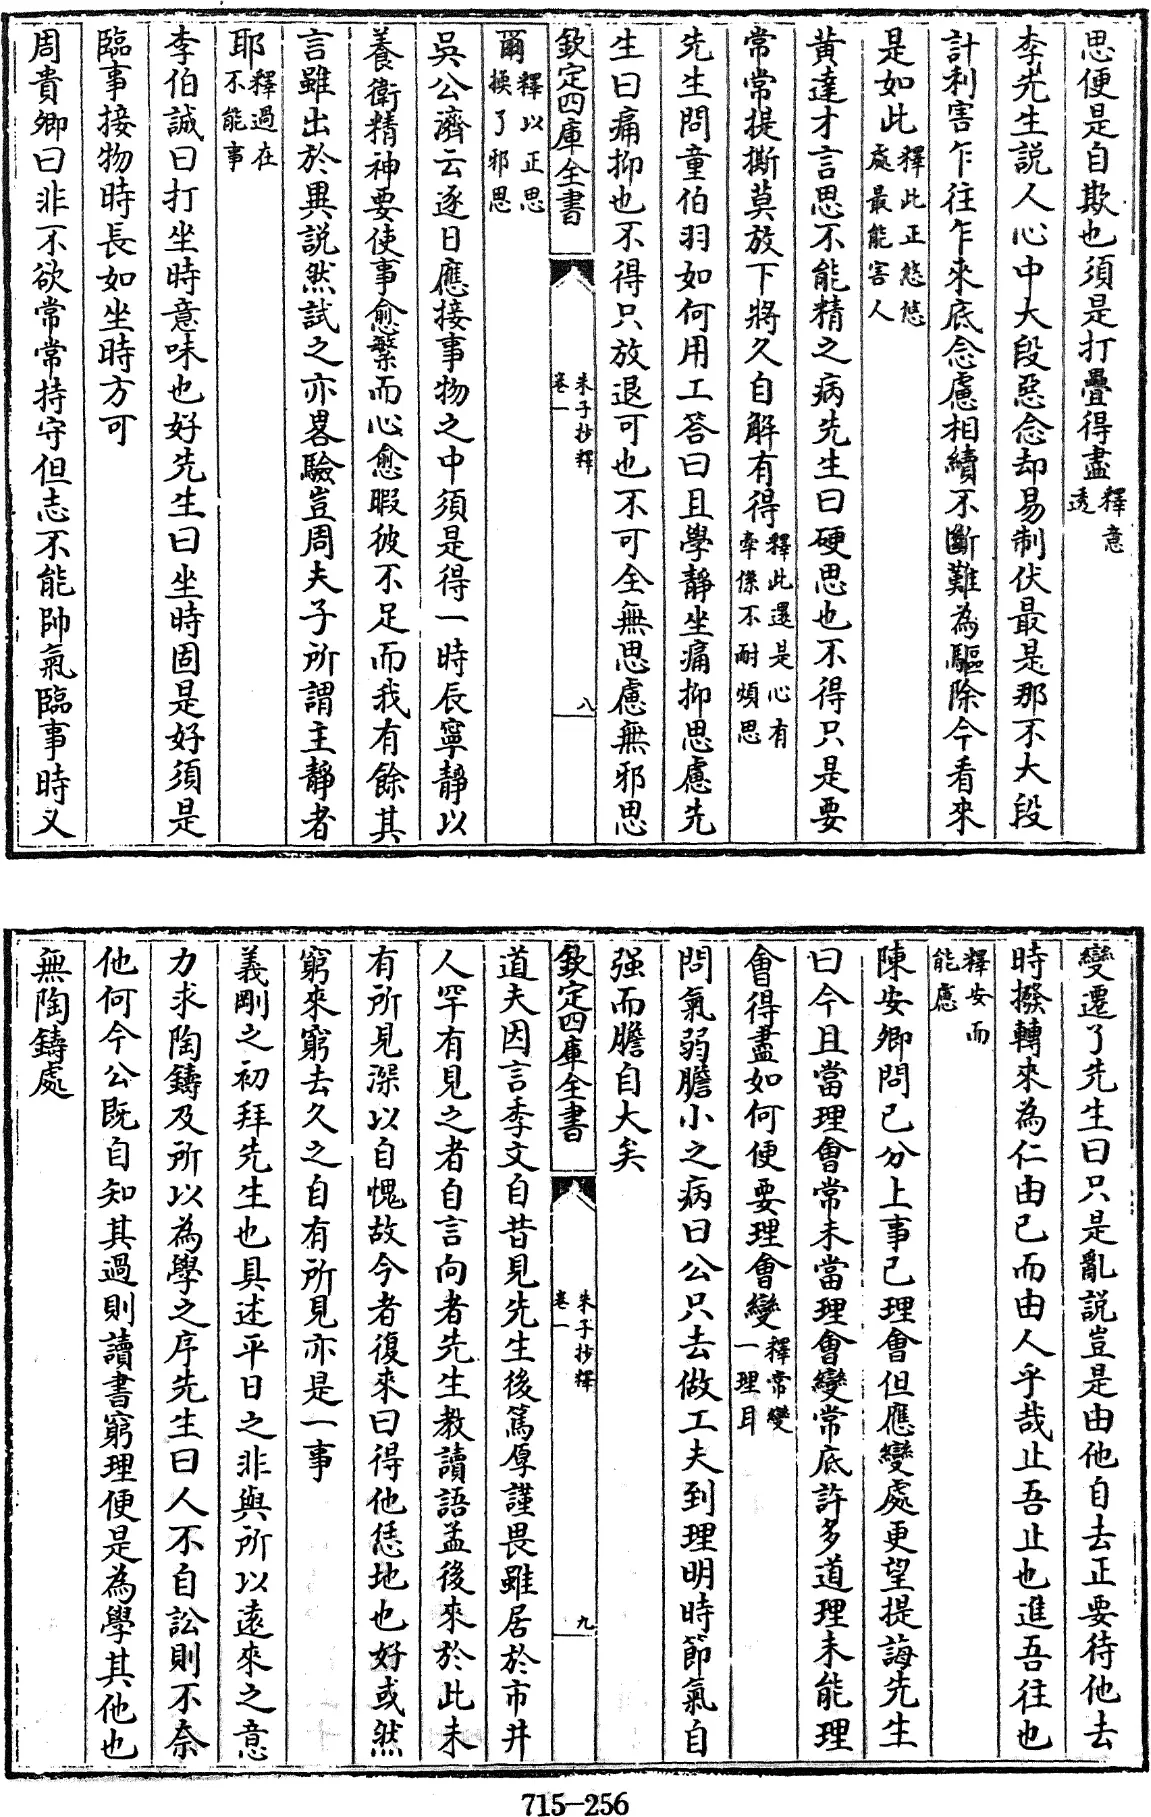 思便是自欺也須是打疊得盡釋意透
李先生説人心中大段惡念却易制伏最是那不大段
計利害乍往乍來底念慮相續不斷難為驅除今看來
是如此釋此正悠悠處最能害人
黄達才言思不能精之病先生曰硬思也不得只是要
常常提撕莫放下將久自解有得釋此還是心有牽係不耐煩思
先生問童伯羽如何用工答曰且學靜坐痛抑思慮先
生曰痛抑也不得只放退可也不可全無思慮無邪思
欽定四庫全書
朱子抄釋
卷一
八
爾釋以正思換了邪思
吳公濟云逐日應接事物之中須是得一時辰寧靜以
養衛精神要使事愈繁而心愈暇彼不足而我有餘其
言雖出於異説然試之亦畧驗豈周夫子所謂主靜者
耶釋過在不能事
李伯誠曰打坐時意味也好先生曰坐時固是好須是
臨事接物時長如坐時方可
周貴卿曰非不欲常常持守但志不能帥氣臨事時又
變遷了先生曰只是亂説豈是由他自去正要待他去
時撥轉來為仁由己而由人乎哉止吾止也進吾往也
釋安而能慮
陳安卿問己分上事已理會但應變處更望提誨先生
曰今且當理會常未當理會變常底許多道理未能理
會得盡如何便要理會變釋常變一理耳
問氣弱膽小之病曰公只去做工夫到理明時節氣自
强而膽自大矣
欽定四庫全書
朱子抄釋
卷一
九
道夫因言季文自昔見先生後篤厚謹畏雖居於市井
人罕有見之者自言向者先生教讀語孟後來於此未
有所見深以自愧故今者復來曰得他恁地也好或然
窮來窮去久之自有所見亦是一事
義剛之初拜先生也具述平日之非與所以遠來之意
力求陶鑄及所以為學之序先生曰人不自訟則不奈
他何今公既自知其過則讀書窮理便是為學其他也
無陶鑄處
715-256